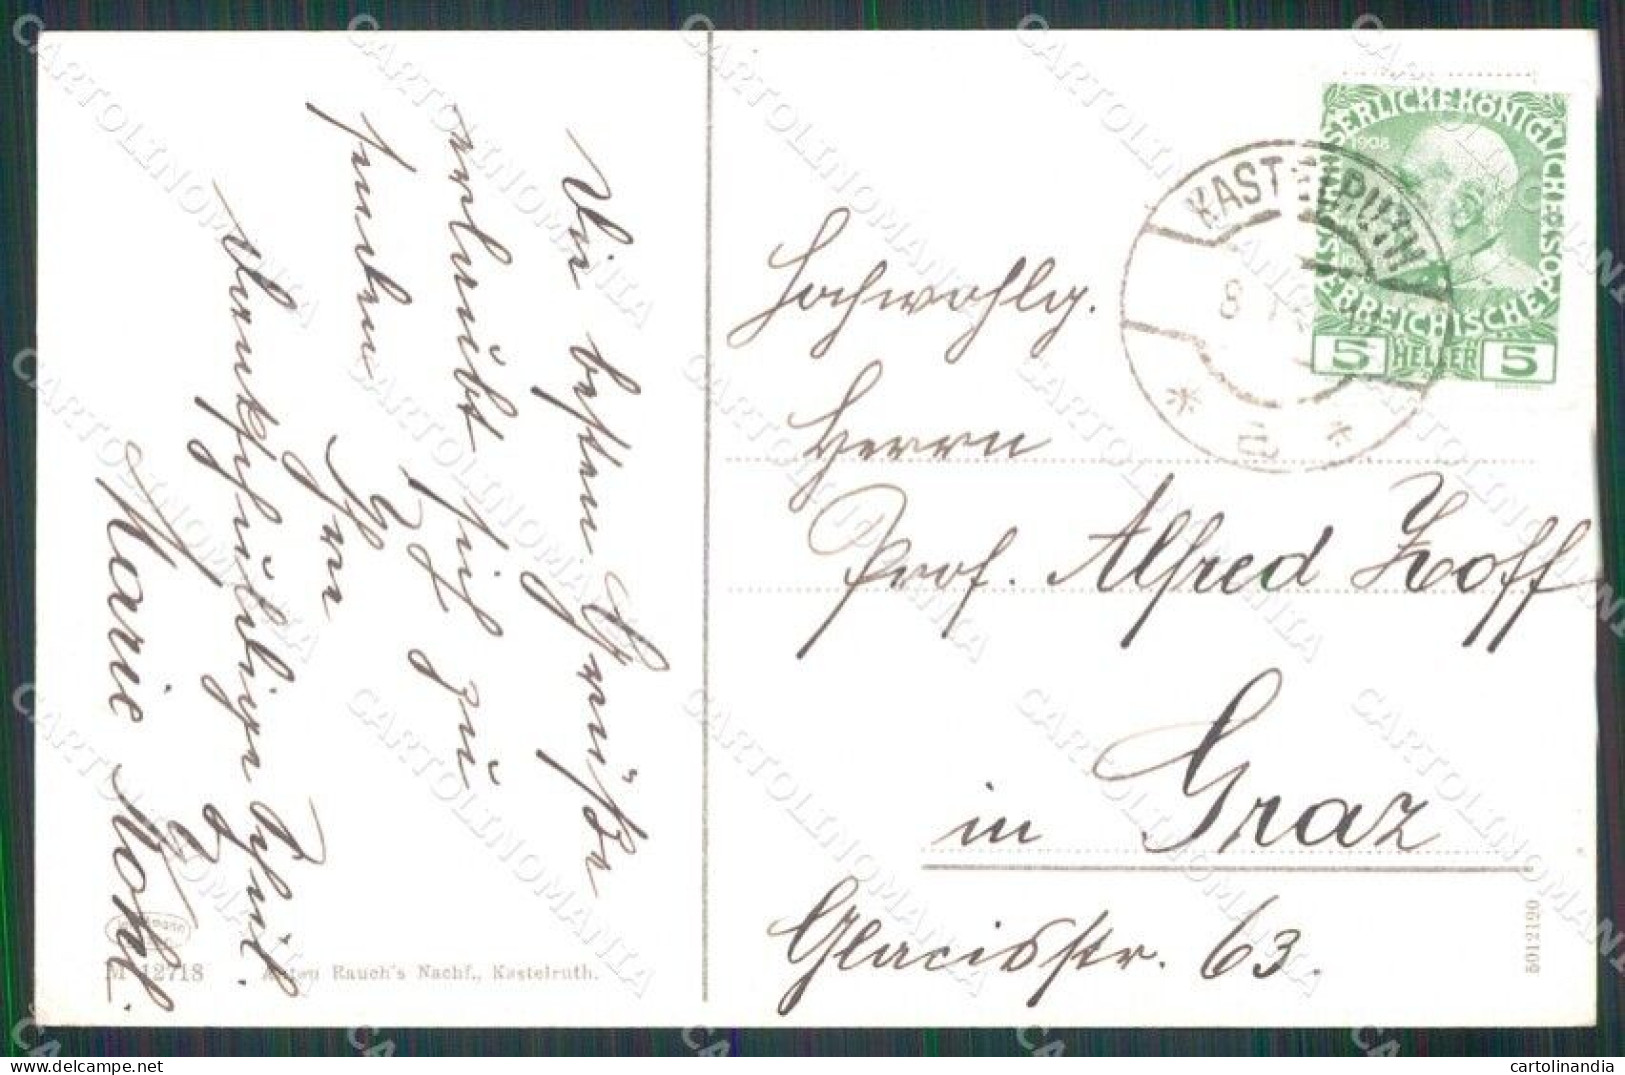 Die besten Grüße
erlaubt sich zu
senden
Ihre
dankschuldige Schül.
Marie Kohl.
KASTELRUTH
8
KAISERLICHE KÖNIGLICHE ÖSTERREICHISCHE POST
1908
5 HELLER 5
Hochwohlg.
Herrn
Prof. Alfred Zoff
in Graz
Glacisstr. 63.
M 12718 Anton Rauch's Nachf., Kastelruth.
5012120
CARTOLINOMANIA
cartolinandia